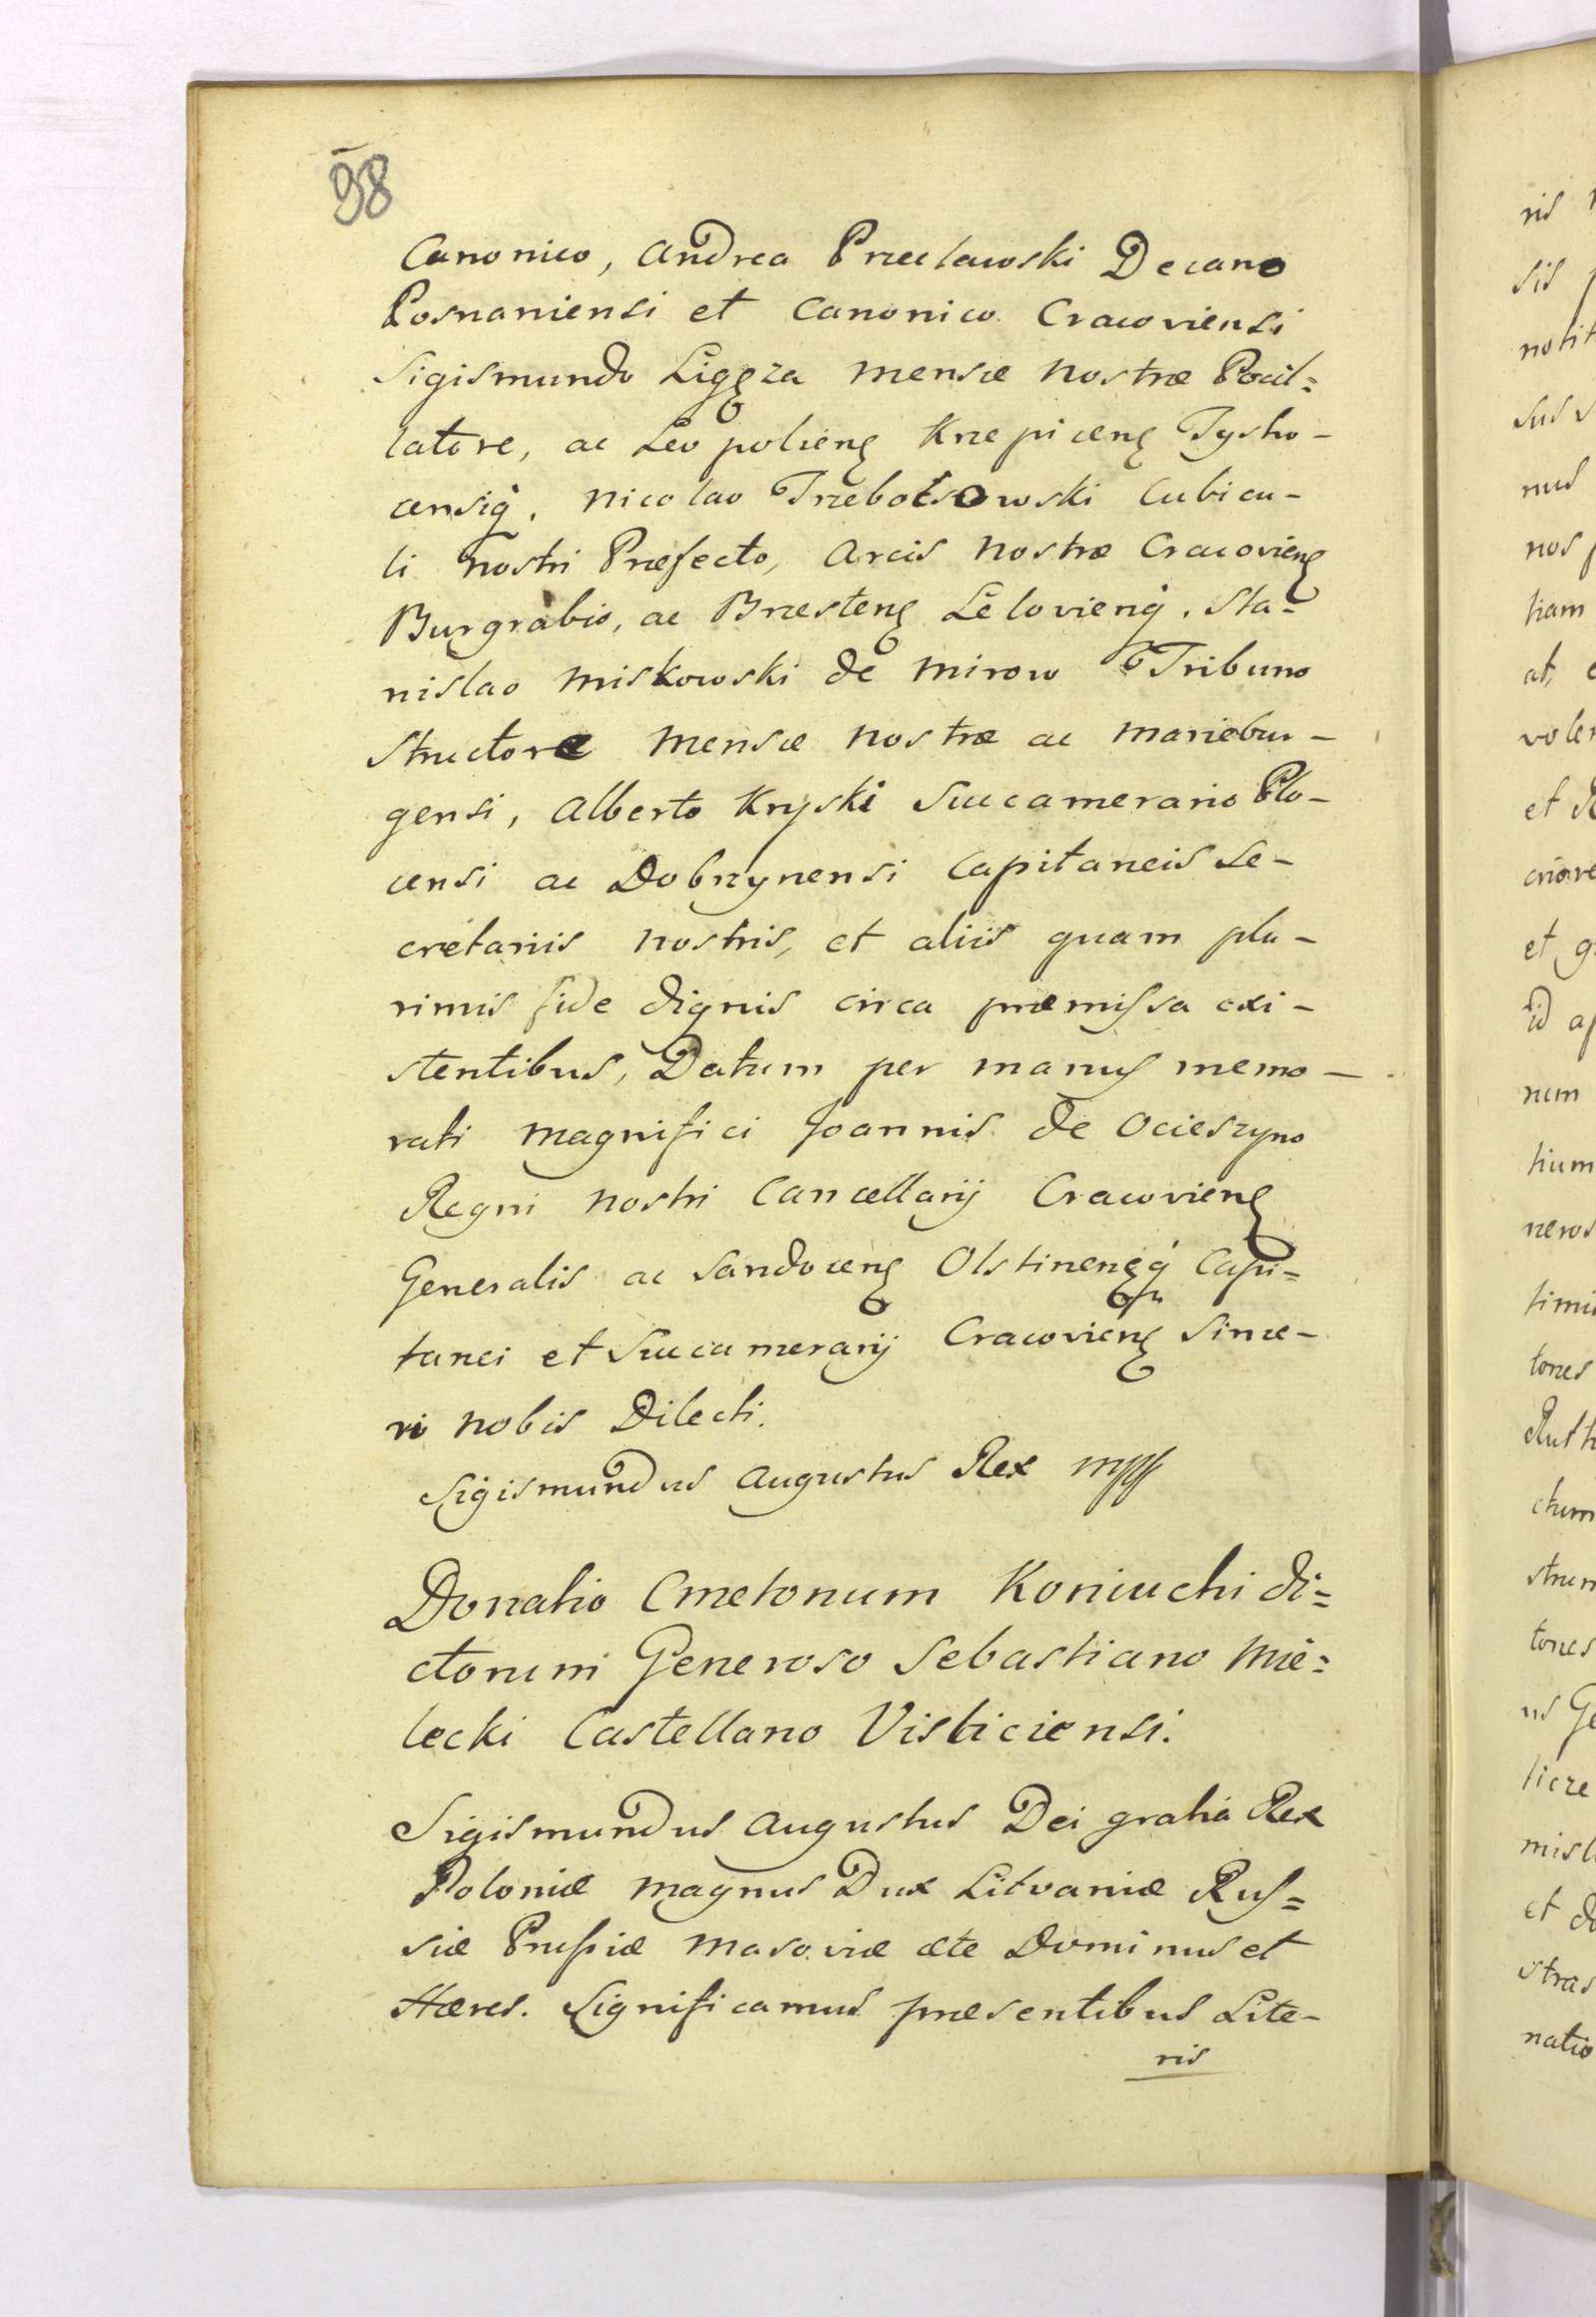 98
Canonico, Andrea Przeclawski Decano
Posnaniensi et Canonico Cracoviensi
Sigismundo Ligęza Mensæ Nostræ Pocil=
latore, ac Leopolieng Krzepiceng Tysho-
censiq́. Nicolao Trzebotsowski Cubicu-
li Nostri Præfecto, Arcis Nostræ Cracovieng
Burgrabio, ac Brzesteng Lelovienq́. Sta=
nislao Miskowski de Mirow Tribuno
Structore Mensæ Nostræ ac Mariebur-
gensi, Alberto Kryski Succamerario Plo-
censi ac Dobrzynensi Capitaneis Se-
cretariis Nostris, et aliis quam plu-
rimis fide dignis circa præmissa exi-
stentibus, Datum per manus memo-
rati Magnifici Joannis de Ocieszyno
Regni Nostri Cancellarij Cracovieng
Generalis ac Sandoceng Olstinengq́ Capi=
tanei et Succamerarij Cracovieng Since-
ri Nobis Dilecti.
Sigismundus Augustus Rex mpp
Donatio Cmetonum Koniuchi di=
ctorum Generoso Sebastiano Mie=
lecki Castellano Visliciensi.
Sigismundus Augustus Dei gratia Rex
Poloniæ Magnus Dux Litvaniæ Rus=
siæ Prussiæ Masoviæ æte Dominus et
Hæres. Significamus præsentibus Lite-
ris